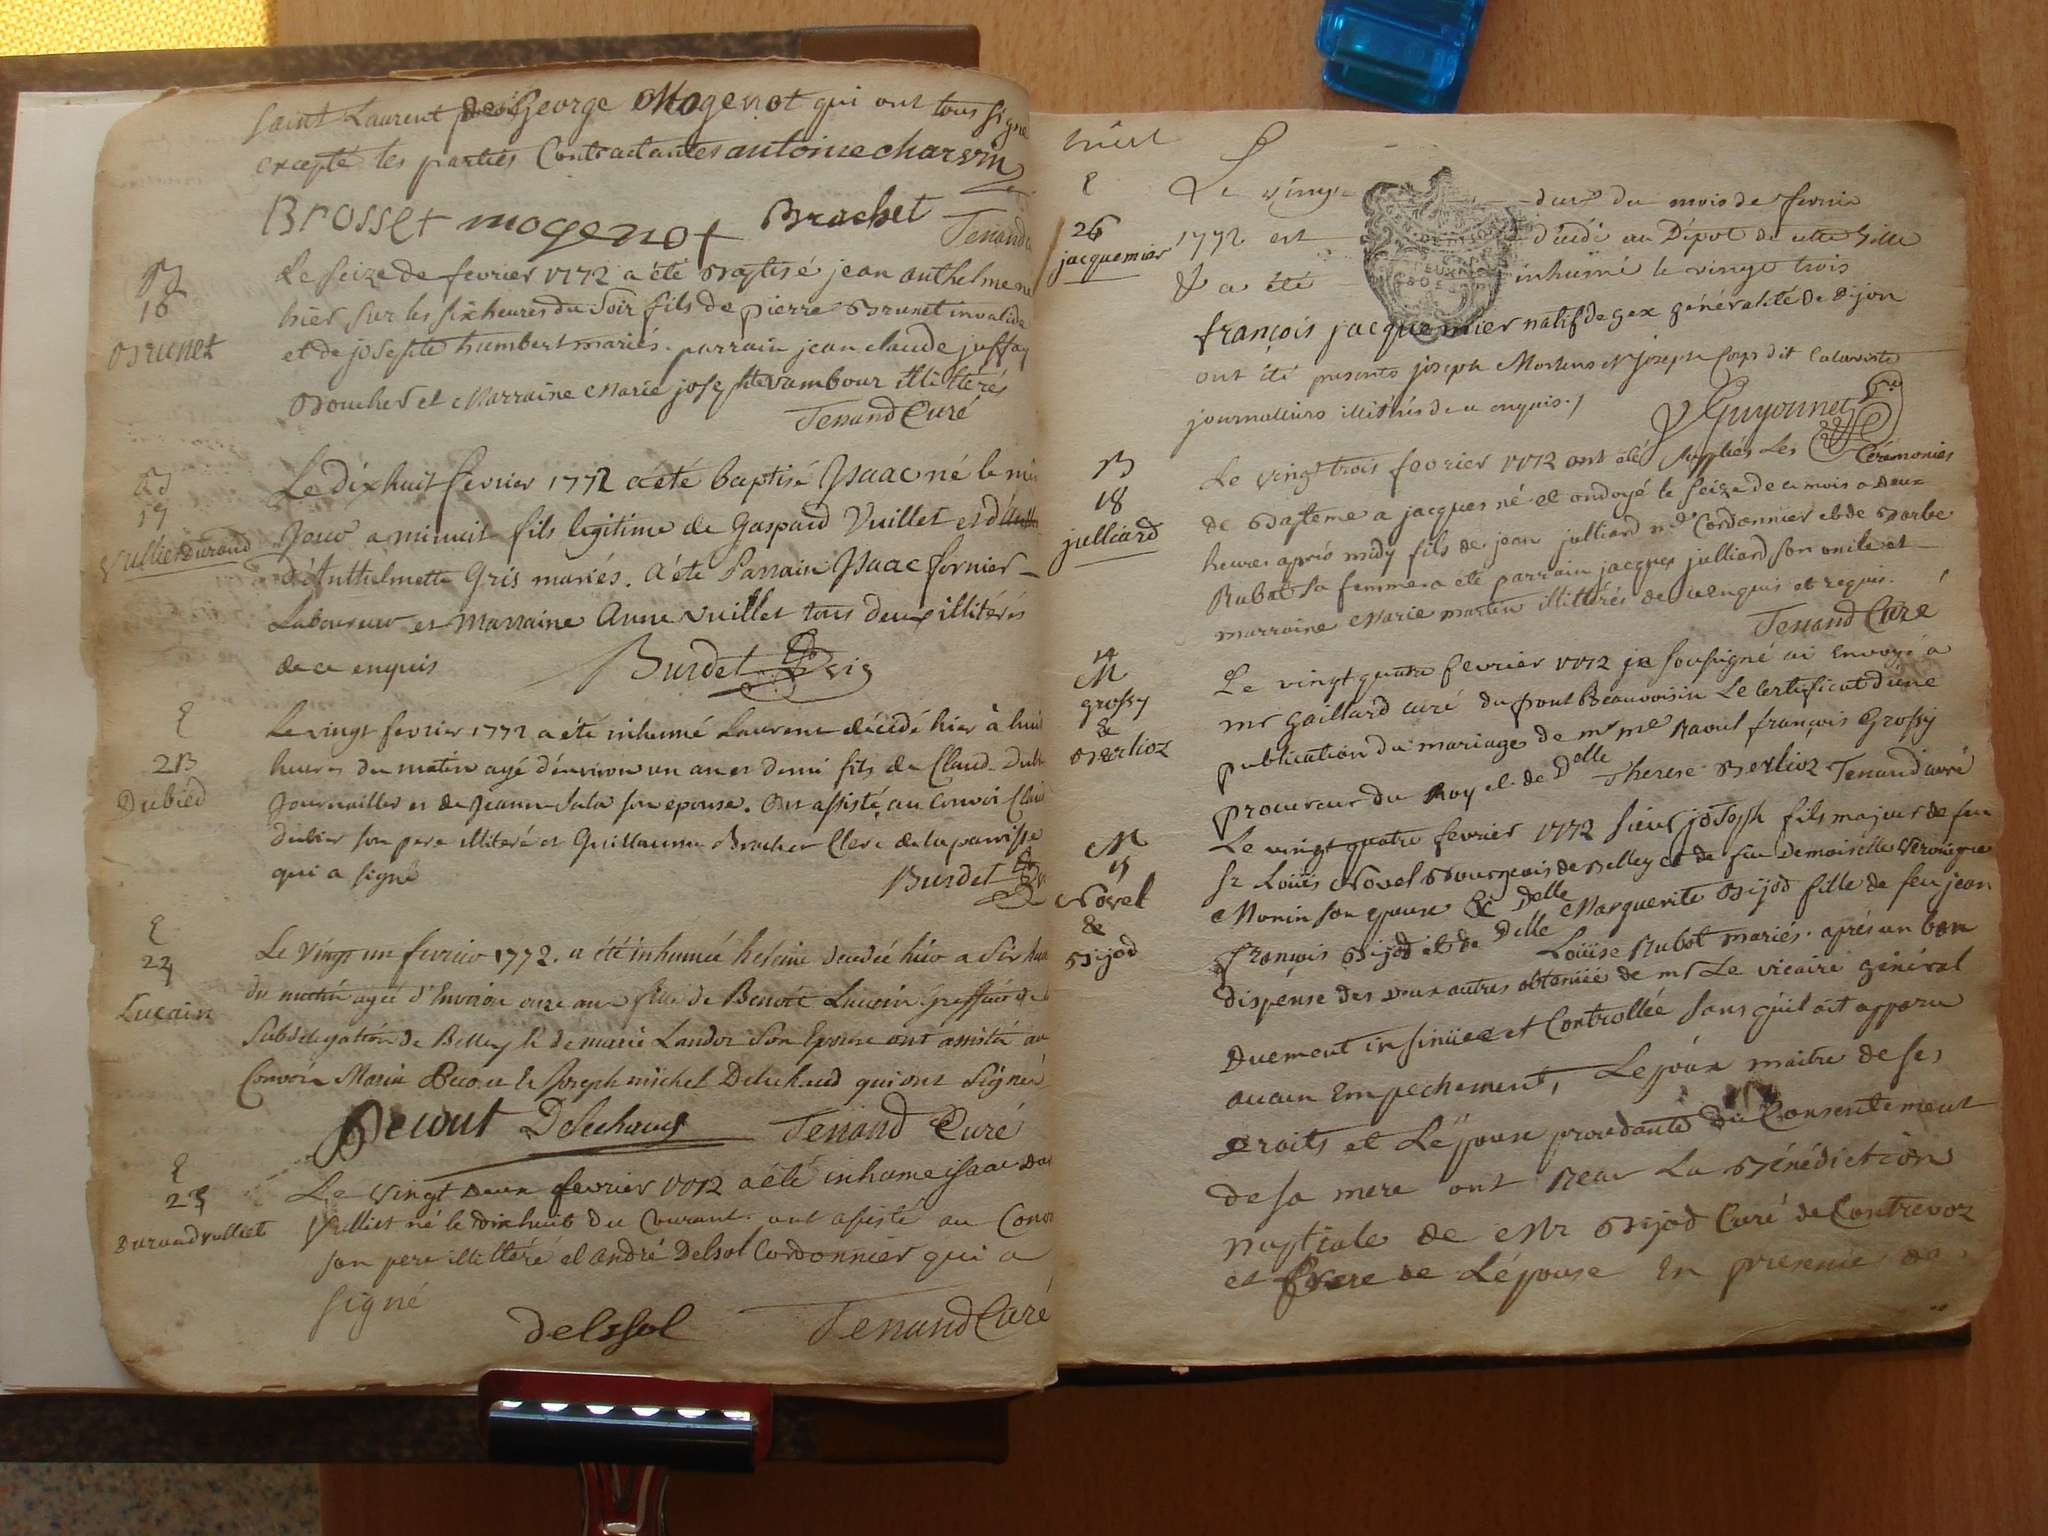 saint Laurent George Mogenot qui ont tous signé
excepté les parties Contractantes antoine charvin
Brosset mogenot Brachet Tenand
B
16
Brunet
Le seize de fevrier 1772 a été Baptisé jean anthelme né
hier sur les six heures du soir fils de pierre Brunet invalide
et de josephte humbert mariés. parrain jean claude juffay
Boucher et Marraine Marie josephte vambour illiterés
Tenand Curé
17
Vulliet Durand
Le dix huit fevrier 1772 a été baptisé Isaac né le
Jour a minuit fils legitime de Gaspard Vuillet et
d'Anthelmette Gris mariés. a été Parrain Isaac fornier
Laboureur et Marraine Anne Vuillet tous deux illitérés
de ce enquis Burdet
E
Dubied
Le vingt fevrier 1772 a été inhumé Laurent décédé hier à huit
heures du matin agé d'environ un an et demi fils de Claude
Journailler et de Jeanne Sala son epouse. Ont assisté au Convoi
son pere illiteré et Guillaume Brachet Clerc de la paroisse
qui a signé Burdet
E
24
Lucain
Le Vingt un fevrier 1772. a été inhumée decedée hier a six
du matin agée d'Environ onze ans fille de Benoit Lucain Greffier
Subdelegation de Belley & de marie Landoz Son Epouse ont assisté au
Convoi Marin Decout & Joseph michel Delechaud qui ont Signé
Decout Delechaud Tenand Curé
E
25
Durand vulliet
Le vingt deux fevrier 1772 a été inhumé isaac
Vulliet né le dixhuit du Courant. ont assisté au Convoi
son pere illittéré et André Delsol Cordonnier qui a
signé
delssol Tenand Curé
huit
E
26
jacquemier
Le vingt deux du mois de fevrier
1772 est décédé au Dépot de cette Ville
& a été inhumé le vingt trois
françois jacquemier natif de gex généralité de Dijon
ont été presents joseph et joseph Corps dit
journaliers illitérés de ce enquis./
Guyonnet
B
18
julliard
Le vingt trois fevrier 1772 ont été suppliés Les Cérémonies
de Bapteme a jacques né et ondoyé le seize de ce mois a deux
heures aprés midy fils de jean julliard md Cordonnier et de Barbe
Rubat sa femme a été parrain jacques julliard son oncle et
marraine Marie martin illitérés de ce enquis et requis.
Tenand Curé
14
M
grossy
&
Berlioz
Le vingt quatre fevrier 1772 je soussigné ai Envoyé a
mr Gaillard curé du pont Beauvoisin Le Certificat d'une
publication du mariage de mr me Raoul françois Grossy
procureur du Roy et de Delle Therese Berlioz Tenand curé
M
15
Novel
&
Bijod
Le vingt quatre fevrier 1772 sieur joseph fils majeur de feu
sr Loüis Novel Bourgeois de Belley et de feu Demoiselle Veronique
Monin son epouse & Delle Marguerite Bijod fille de feu jean
françois Bijod et de Delle Loüise Rubat mariés. aprés un ban
dispense des deux autres obtenüe de mr Le vicaire général
Duement insinüee et Controllée sans qu'il ait apparu
aucun Empechement, Lepoux maitre de ses
Droits et L'Epouse procedante du Consentement
de sa mere ont Reçu La Bénédiction
nuptiale de Mr Bijod Curé de Contrevoz
et frere de L'épouse En presence de